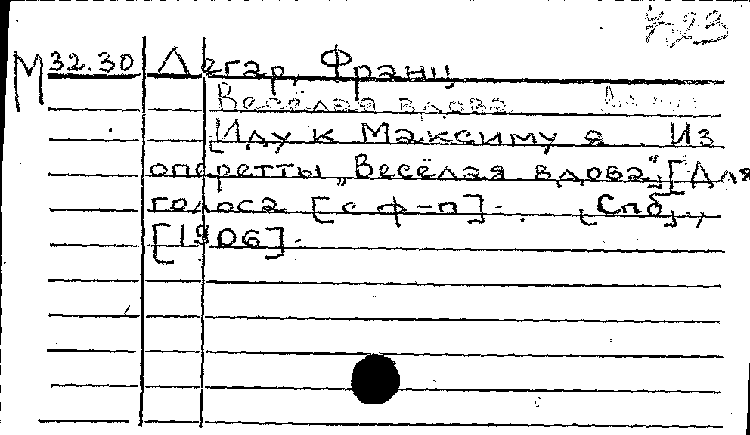 7,23
М 32.30 Легар, Франц
Весёлая вдова
[Иду к Максиму я. Из
оперетты „Весёлая вдова"] [Для
голоса [с ф-п]. [Спб],
[1906].